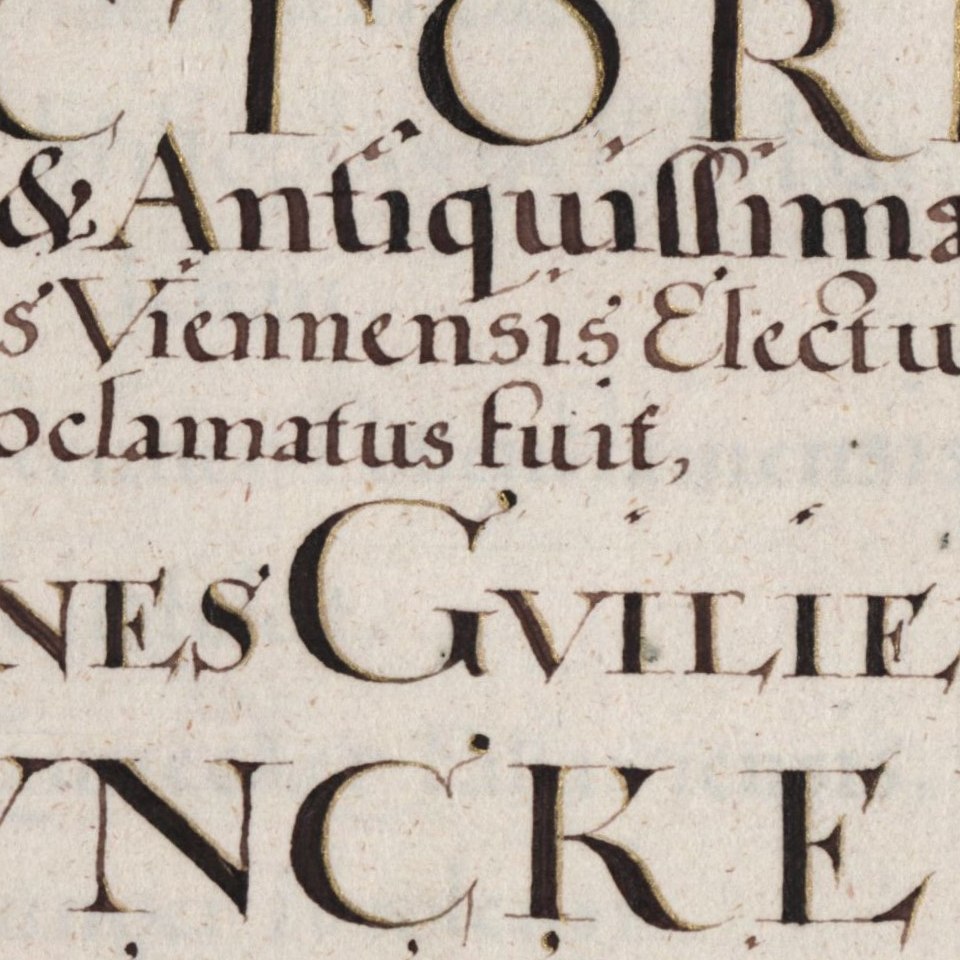 CTORI
& Antiquissima
s Viennensis Electu
oclamatus fuit,
NES GVILIE
YNCKE